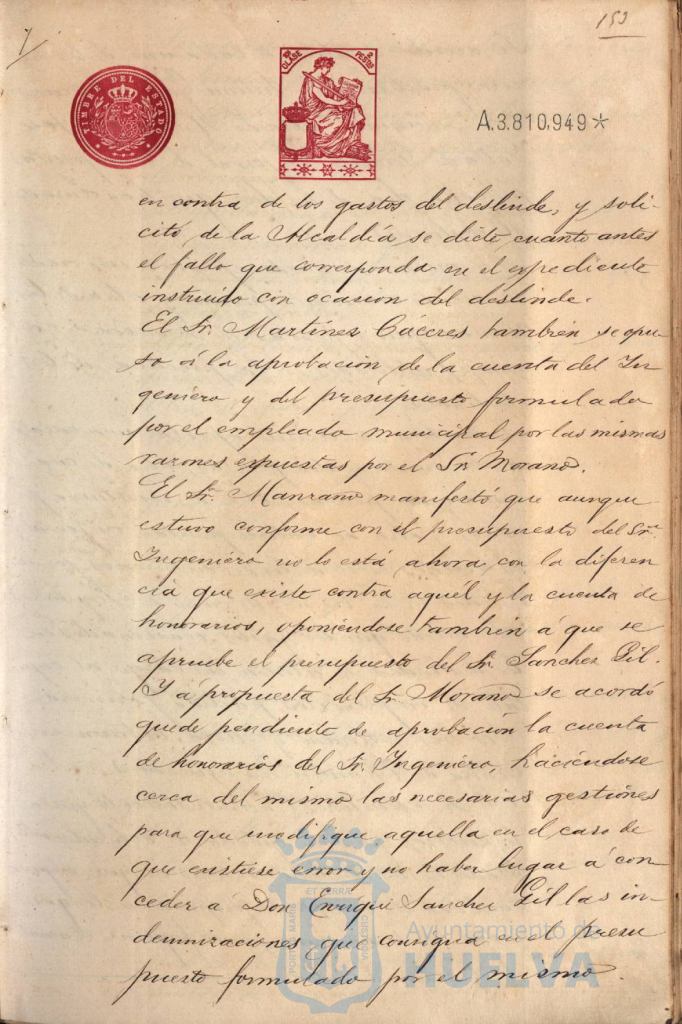 153
TIMBRE DEL ESTADO
CLASE
PESETAS
A.3.810.949*
en contra de los gastos del deslinde, y soli-
citó de la Alcaldía se dicte cuanto antes
el fallo que corresponda en el expediente
instruido con ocasion del deslinde.
El Sr. Martínez Cáceres tambien se opu-
so á la aprobación de la cuenta del In-
geniero y del presupuesto formulado
por el empleado municipal por las mismas
razones expuestas por el Sr. Morano.
El Sr. Manzano manifestó que aunque
estuvo conforme con el presupuesto del Sr.
Ingeniero no lo está ahora con la diferen
cia que existe contra aquél y la cuenta de
honorarios, oponiéndose tambien á que se
apruebe el presupuesto del Sr. Sanchez Gil.
Y á propuesta del Sr. Morano se acordó
quede pendiente de aprobación la cuenta
de honorarios del Sr. Ingeniero, haciéndose
cerca del mismo las necesarias gestiones
para que modifique aquella en el caso de
que existiese error y no haber lugar á con
ceder á Don Enrique Sanchez Gil las in-
demnizaciones que consigna en el presu
puesto formulado por el mismo.
Ayuntamiento de
HUELVA